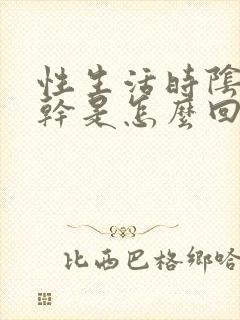 性生活時陰
幹是怎麼回
比西巴格鄉哈